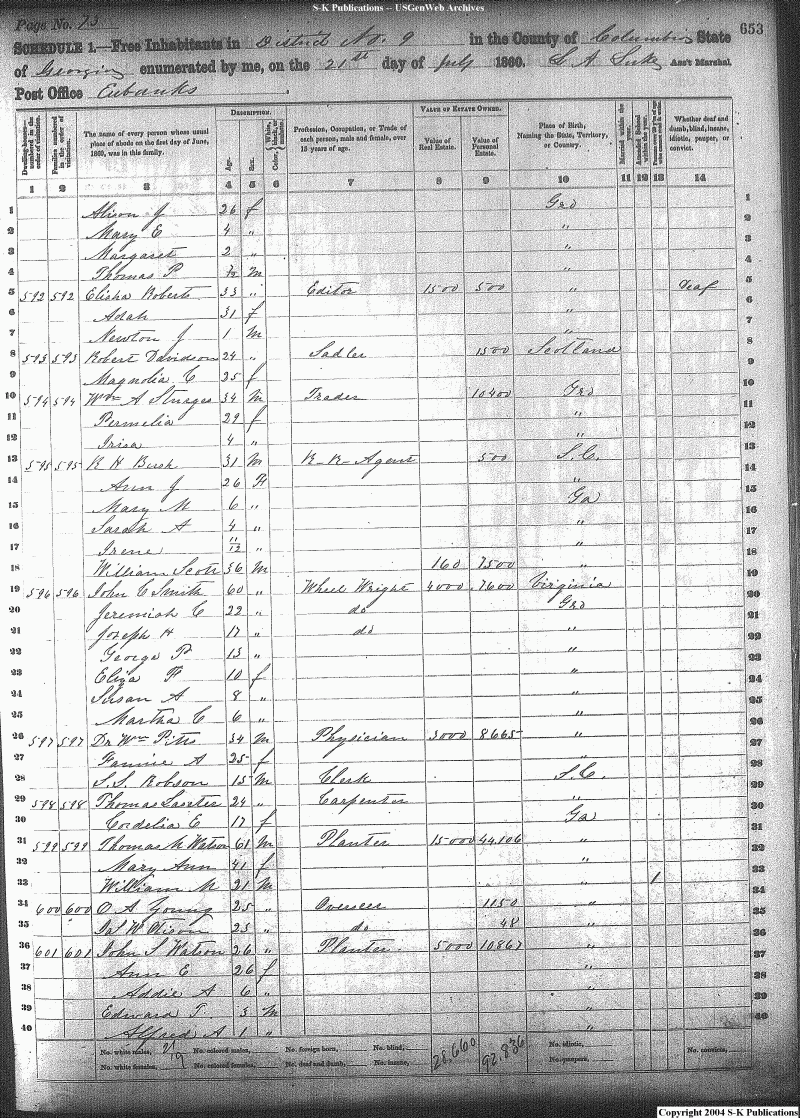 S-K Publications -- USGenWeb Archives
Page No. 73
653
SCHEDULE 1.—Free Inhabitants in District No. 9 in the County of Columbia State
of Georgia enumerated by me, on the 21st day of July 1860. Ass't Marshal
Post Office Eubanks
DESCRIPTION. VALUE OF ESTATE OWNED.
Dwelling-houses—numbered in the order of visitation.
Families numbered in the order of visitation.
The name of every person whose usual place of abode on the first day of June, 1860, was in this family.
Age.
Sex.
Color, White, black, or mulatto.
Profession, Occupation, or Trade of each person, male and female, over 15 years of age.
Value of Real Estate.
Value of Personal Estate.
Place of Birth, Naming the State, Territory, or Country.
Married within the year.
Attended School within the year.
Persons over 20 y'rs of age who cannot read & write.
Whether deaf and dumb, blind, insane, idiotic, pauper, or convict.
1 2 3 4 5 6 7 8 9 10 11 12 13 14
1 Alison J 26 f Geo 1
2 Mary E 4 " " 2
3 Margaret 2 " " 3
4 Thomas P m " 4
5 592 592 Elisha Roberts 33 " Editor 1500 500 " Deaf 5
6 Adah 31 f " 6
7 Newton J 1 m " 7
8 593 593 Robert Davidson 24 " Sadler 1500 Scotland 8
9 Magnolia C 25 f 9
10 594 594 Wm A Sturges 34 M Trader 10400 Geo 10
11 Permelia 29 f " 11
12 Irisa 4 " " 12
13 595 595 R H Bush 31 M R-R-Agent 500 S.C. 13
14 Ann J 26 F " 14
15 Mary M 6 " Ga 15
16 Sarah A 4 " " 16
17 Irene 11/12 " " 17
18 William Scott 36 M 160 7500 " 18
19 596 596 John C Smith 60 " Wheel Wright 4000 7600 Virginia 19
20 Jeremiah C 22 " do Geo 20
21 Joseph H 17 " do " 21
22 George P 13 " " 22
23 Eliza F 10 f " 23
24 Susan A 8 " " 24
25 Martha C 6 " " 25
26 597 597 Dr Wm Pitts 34 M Physician 3000 8665 " 26
27 Fannie A 25 f " 27
28 S.S. Robson 15 M Clerk S.C. 28
29 598 598 Thomas Lasseter 24 " Carpenter " 29
30 Cordelia E 17 f Ga 30
31 599 599 Thomas M Watson 61 M Planter 15000 44,106 " 31
32 Mary Ann 41 f " 32
33 William M 21 M " 1 33
34 600 600 O A Young 25 " Overseer 1150 " 34
35 W 25 " do 48 " 35
36 601 601 John S Watson 26 " Planter 5000 10867 " 36
37 Ann E 26 f " 37
38 Addie A 6 " " 38
39 Edward T. 3 M " 39
40 Alfred A 1 " " 40
No. white males, 21 No. colored males, No. foreign born, No. blind, 28,660 92,836 No. idiotic, No. convicts,
No. white females, 19 No. colored females, No. deaf and dumb, No. insane, No. paupers,
Copyright 2004 S-K Publications